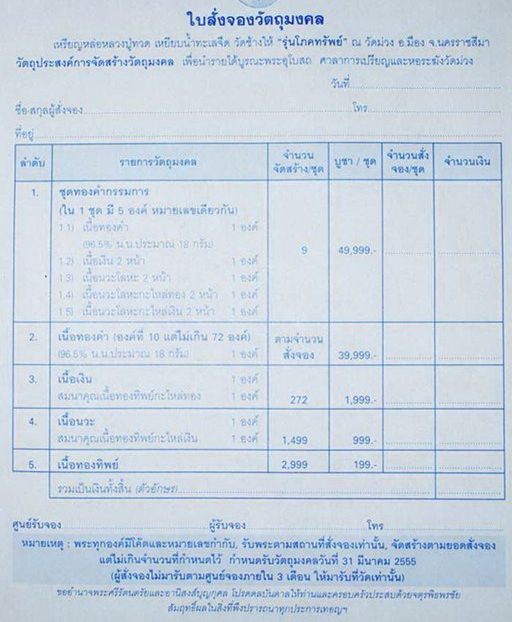 ใบสั่งจองวัตถุมงคล
เหรียญหล่อหลวงปู่ทวด เหยียบน้ำทะเลจืด วัดช้างให้ "รุ่นโภคทรัพย์" ณ วัดม่วง อ.เมือง จ.นครราชสีมา
วัตถุประสงค์การจัดสร้างวัตถุมงคล เพื่อนำรายได้บูรณะพระอุโบสถ ศาลาการเปรียญและหอระฆังวัดม่วง
วันที่
ชื่อ-สกุลผู้สั่งจอง โทร
ที่อยู่
ลำดับ รายการวัตถุมงคล จำนวนจัดสร้าง/ชุด บูชา / ชุด จำนวนสั่งจอง/ชุด จำนวนเงิน
1. ชุดทองคำกรรมการ
(ใน 1 ชุด มี 5 องค์ หมายเลขเดียวกัน)
1.1) เนื้อทองคำ 1 องค์
(96.5% น.น.ประมาณ 18 กรัม) 9 49,999.-
1.2) เนื้อเงิน 2 หน้า 1 องค์
1.3) เนื้อนวะโลหะ 2 หน้า 1 องค์
1.4) เนื้อนวะโลหะกะไหล่ทอง 2 หน้า 1 องค์
1.5) เนื้อนวะโลหะกะไหล่เงิน 2 หน้า 1 องค์
2. เนื้อทองคำ (องค์ที่ 10 แต่ไม่เกิน 72 องค์) ตามจำนวน
(96.5% น.น.ประมาณ 18 กรัม) 1 องค์ สั่งจอง 39,999.-
3. เนื้อเงิน 1 องค์
สมนาคุณเนื้อทองทิพย์กะไหล่ทอง 1 องค์ 272 1,999.-
4. เนื้อนวะ 1 องค์
สมนาคุณเนื้อทองทิพย์กะไหล่เงิน 1 องค์ 1,499 999.-
5. เนื้อทองทิพย์ 2,999 199.-
รวมเป็นเงินทั้งสิ้น (ตัวอักษร)
ศูนย์รับจอง ผู้รับจอง โทร
หมายเหตุ : พระทุกองค์มีโค๊ตและหมายเลขกำกับ, รับพระตามสถานที่สั่งจองเท่านั้น, จัดสร้างตามยอดสั่งจอง
แต่ไม่เกินจำนวนที่กำหนดไว้ กำหนดรับวัตถุมงคลวันที่ 31 มีนาคม 2555
(ผู้สั่งจองไม่มารับตามศูนย์จองภายใน 3 เดือน ให้มารับที่วัดเท่านั้น)
ขออำนาจพระศรีรัตนตรัยและอานิสงส์บุญกุศล โปรดดลบันดาลให้ท่านและครอบครัวประสบด้วยจตุรพิธพรชัย
สัมฤทธิ์ผลในสิ่งที่พึงปรารถนาทุกประการเทอญฯ